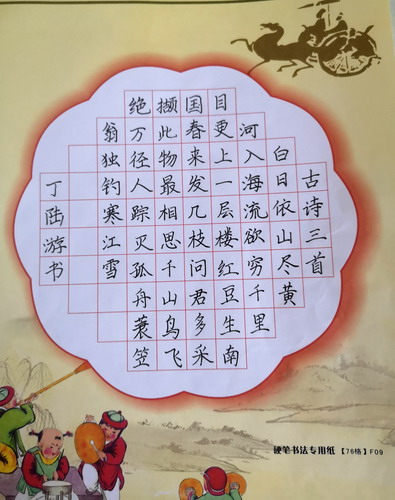 古诗三首
白日依山尽黄
河入海流欲穷千里
目更上一层楼红豆生南
国春来发几枝问君多采
撷此物最相思千山鸟飞
绝万径人踪灭孤舟蓑笠
翁独钓寒江雪
丁陆游书
硬笔书法专用纸【76格】F09